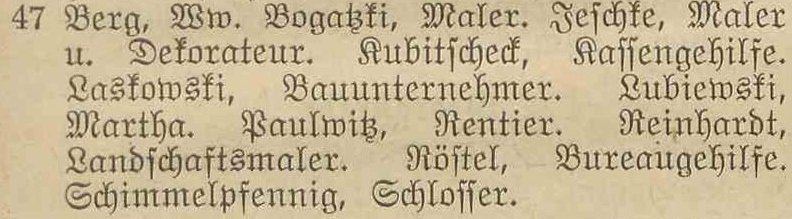 47 Berg, Ww. Bogatzki, Maler. Jeschke, Maler
u. Dekorateur. Kubitscheck, Kassengehilfe.
Laskowski, Bauunternehmer. Lubiewski,
Martha. Paulwitz, Rentier. Reinhardt,
Landschaftsmaler. Röstel, Bureaugehilfe.
Schimmelpfennig, Schlosser.